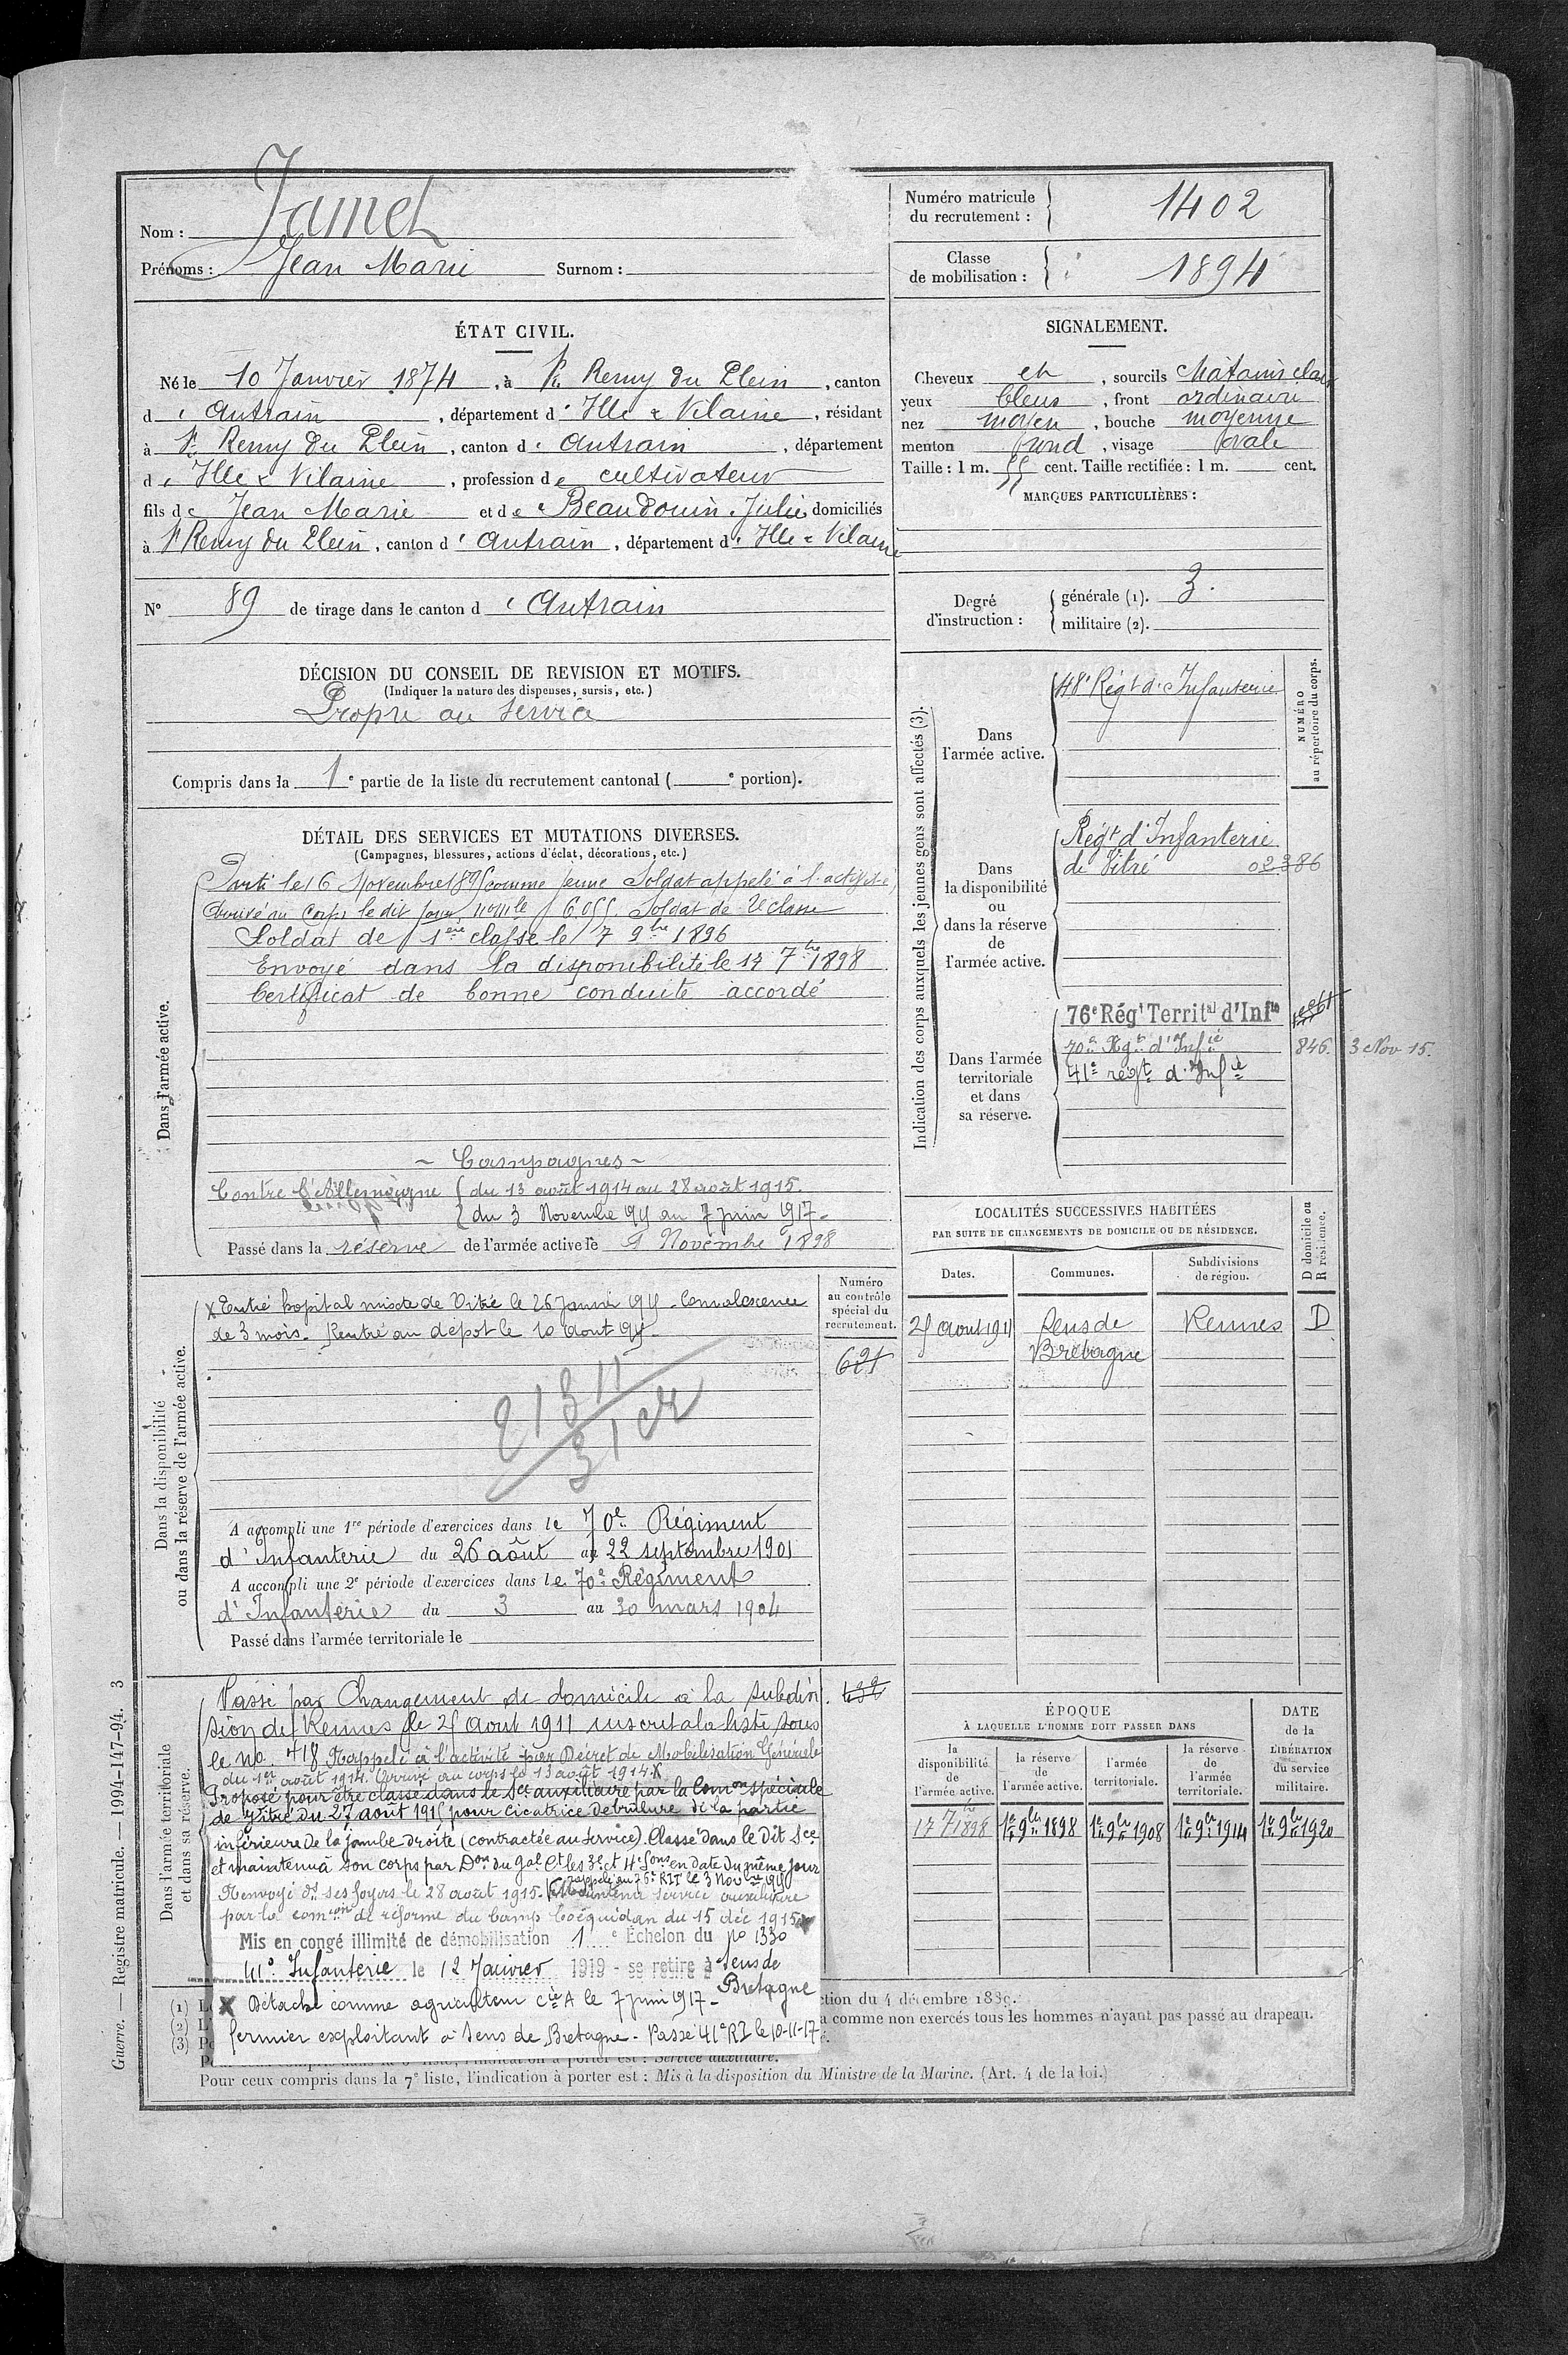 Nom : Jamet
Prénoms : Jean Marie Surnom :
Numéro matricule du recrutement : 1402
Classe de mobilisation : 1894
ÉTAT CIVIL.
Né le 10 Janvier 1874, à St Remy du Plein, canton
d'Antrain, département d'Ille & Vilaine, résidant
à St Remy du Plein, canton d'Antrain, département
d'Ille & Vilaine, profession de cultivateur
fils de Jean Marie et de Beaudouin Julie domiciliés
à St Remy du Plein, canton d'Antrain, département d'Ille & Vilaine
N° 89 de tirage dans le canton d'Antrain
SIGNALEMENT.
Cheveux et, sourcils châtains clair
yeux bleus, front ordinaire
nez moyen, bouche moyenne
menton rond, visage ovale
Taille : 1 m. 55 cent. Taille rectifiée : 1 m. cent.
MARQUES PARTICULIÈRES :
Degré d'instruction : générale (1). 3.
militaire (2).
DÉCISION DU CONSEIL DE REVISION ET MOTIFS.
(Indiquer la nature des dispenses, sursis, etc.)
Propre au service
Compris dans la 1e partie de la liste du recrutement cantonal ( e portion).
DÉTAIL DES SERVICES ET MUTATIONS DIVERSES.
(Campagnes, blessures, actions d'éclat, décorations, etc.)
Dans l'armée active.
Parti le 16 Novembre 1895 comme jeune Soldat appelé à l'activité,
arrivé au corps le dit jour, no mle 6.055. Soldat de 2e classe
Soldat de 1ère classe le 7 9bre 1896
Envoyé dans la disponibilité le 17 7bre 1898
Certificat de bonne conduite accordé
~ Campagnes ~
Contre l'Allemagne { du 13 août 1914 au 28 août 1915.
{ du 3 Novembre 1915 au 7 juin 1917.
Passé dans la réserve de l'armée active le 1 Novembre 1898
Indication des corps auxquels les jeunes gens sont affectés (3).
NUMÉRO au répertoire du corps.
Dans l'armée active.
48e Régt d'Infanterie
Dans la disponibilité ou dans la réserve de l'armée active.
Régt d'Infanterie
de Vitré 02386
Dans l'armée territoriale et dans sa réserve.
76e Régt Territal d'Infie
70e Rgt d'Infie 846. 3 Nov 15.
41e régt d'Infie
Dans la disponibilité ou dans la réserve de l'armée active.
Numéro au contrôle spécial du recrutement.
X Entré hopital mixte de Vitré le 26 Janvier 1915. Convalescence
de 3 mois. Rentré au dépot le 10 Aout 1915
621
A accompli une 1re période d'exercices dans le 70e Régiment
d'Infanterie du 26 août au 22 septembre 1901
A accompli une 2e période d'exercices dans le 70e Régiment
d'Infanterie du 3 au 30 mars 1904
Passé dans l'armée territoriale le
LOCALITÉS SUCCESSIVES HABITÉES
PAR SUITE DE CHANGEMENTS DE DOMICILE OU DE RÉSIDENCE.
Dates. Communes. Subdivisions de région. D domicile ou R résidence.
25 Aout 1911 Sens de Bretagne Rennes D
Dans l'armée territoriale et dans sa réserve.
Passé par Changement de domicile à la subdivi-
sion de Rennes le 25 Aout 1911 inscrit à la liste sous
le no 718 Rappelé à l'activité par Décret de Mobilisation Générale
du 1er août 1914. Arrivé au corps le 13 août 1914. X
Proposé pour être classé dans le Sce auxiliaire par la Comon spéciale
de Vitré du 27 aout 1915 pour cicatrice de brulure de la partie
inférieure de la jambe droite (contractée au service). Classé dans le dit Sce
et maintenu à son corps par Don du Gal Ct les 3e et 4e Sons en date du même jour
Renvoyé ds ses foyers le 28 août 1915. rappelé au 76e RIT le 3 Novbre 1915 Maintenu service auxiliaire
par la comon de réforme du Camp Coëquidan du 15 déc 1915
Mis en congé illimité de démobilisation 1e Échelon du no 1330
41e Infanterie le 12 Janvier 1919 - se retire à Sens de Bretagne
X Détaché comme agriculteur cie A le 7 juin 1917 -
fermier exploitant à Sens de Bretagne - Passé 41e RI le 10-11-17
ÉPOQUE
À LAQUELLE L'HOMME DOIT PASSER DANS
la disponibilité de l'armée active. la réserve de l'armée active. l'armée territoriale. la réserve de l'armée territoriale. DATE de la LIBÉRATION du service militaire.
17 7bre 1898 1er 9bre 1898 1er 9bre 1908 1er 9bre 1914 1er 9bre 1920
(1)
(2)
(3)
ction du 4 décembre 1889.
comme non exercés tous les hommes n'ayant pas passé au drapeau.
l'indication à porter est : Service auxiliaire.
Pour ceux compris dans la 7e liste, l'indication à porter est : Mis à la disposition du Ministre de la Marine. (Art. 4 de la loi.)
Guerre. — Registre matricule. — 1994-147-94. 3